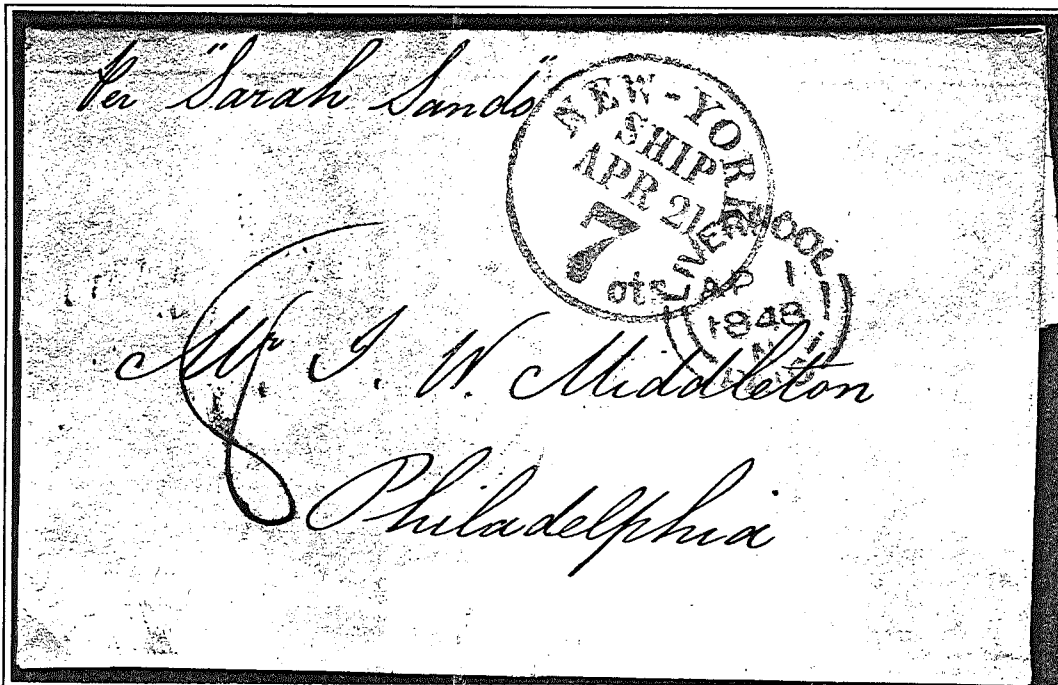 Per "Sarah Sands"
NEW-YORK
SHIP
APR 21
7
cts
LIVERPOOL
AP 1
1848
8
Mr J. W. Middleton
Philadelphia